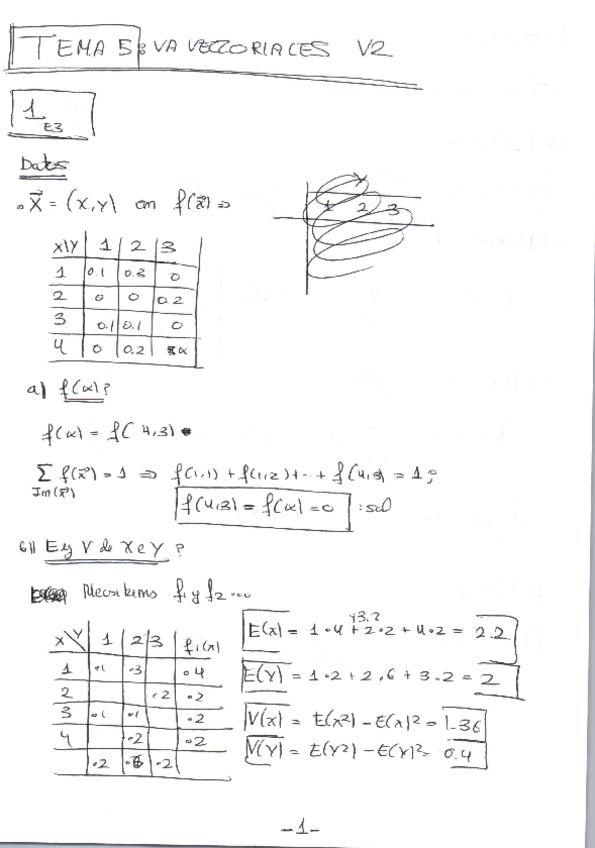 TEMA 5: VA VECTORIALES V2
1 E3
Datos
X⃗ = (X,Y) con f(x⃗) ⇒
Y
1 2 3
X\Y 1 2 3
1 0.1 0.3 0
2 0 0 0.2
3 0.1 0.1 0
4 0 0.2 α
a) f(α)?
f(α) = f(4,3)
Σ f(x⃗) = 1 ⇒ f(1,1) + f(1,2) + ... + f(4,3) = 1;
Im(x⃗)
f(4,3) = f(α) = 0 : sol
b) E y V de X e Y?
Necesitamos f1 y f2 ...
X\Y 1 2 3 f1(x)
1 .1 .3 .4
2 .2 .2
3 .1 .1 .2
4 .2 .2
.2 .6 .2
+3.2
E(X) = 1·4 + 2·2 + 4·2 = 2.2
E(Y) = 1·2 + 2·6 + 3·2 = 2
V(X) = E(X²) - E(X)² = 1.36
V(Y) = E(Y²) - E(Y)² = 0.4
-1-